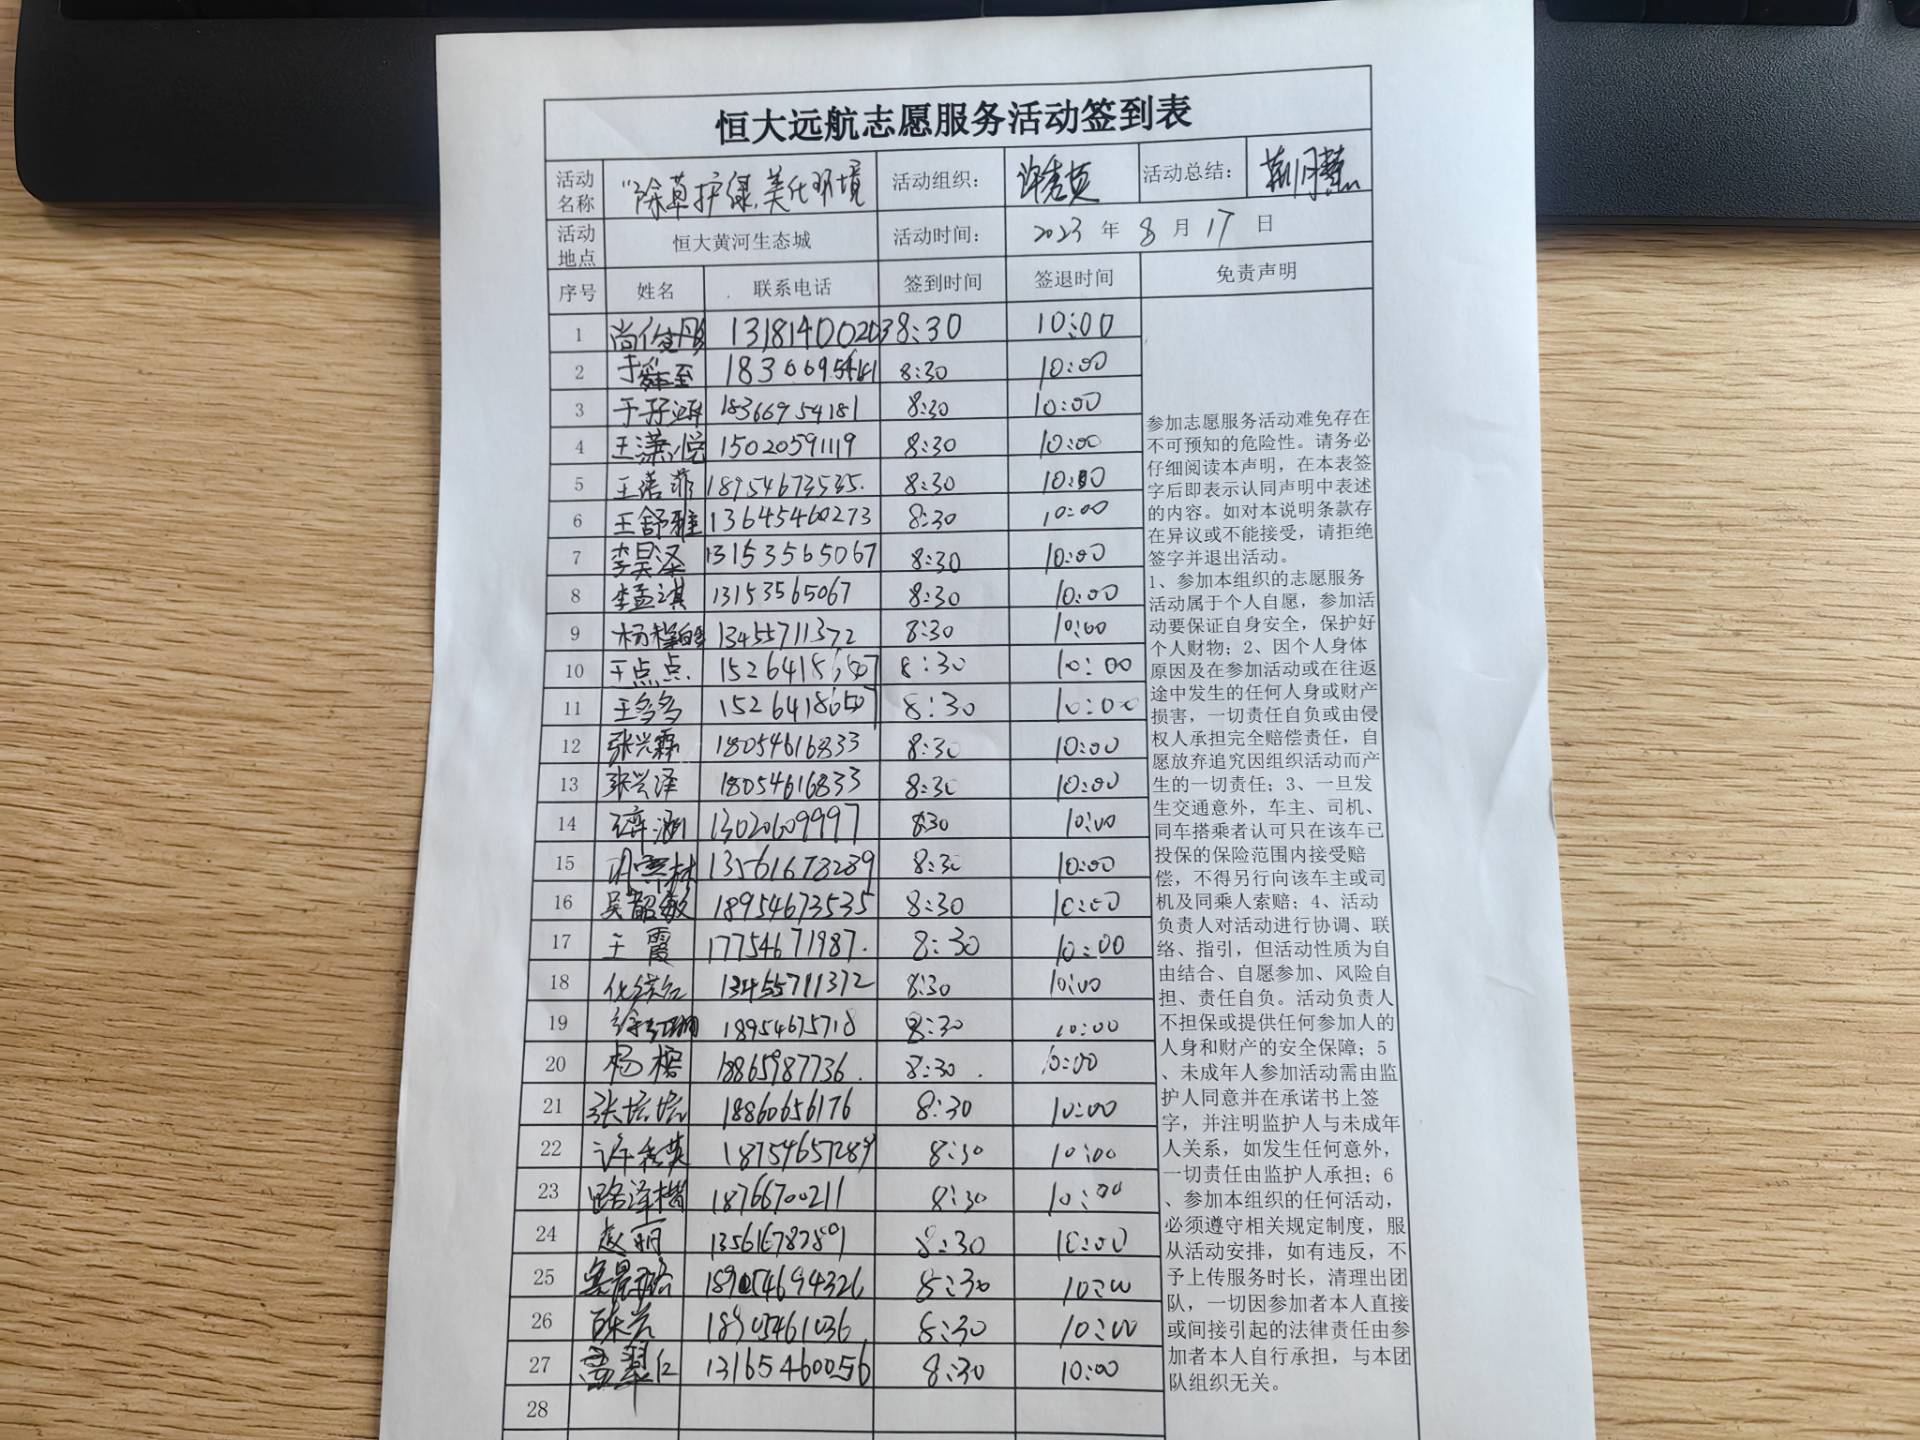 恒大远航志愿服务活动签到表
活动名称 "除草护绿,美化环境 活动组织： 许秀英 活动总结： 荆月慧
活动地点 恒大黄河生态城 活动时间： 2023 年 8 月 17 日
序号 姓名 联系电话 签到时间 签退时间 免责声明
1 尚俊彤 13181400203 8:30 10:00
2 于舜至 8:30 10:00
3 于舒涵 18366954181 8:30 10:00
4 王潇悦 15020591119 8:30 10:00
5 王诺菲 18954673535. 8:30 10:00
6 王舒雅 13645460273 8:30 10:00
7 李昊泽 13153565067 8:30 10:00
8 李孟淇 13153565067 8:30 10:00
9 杨 13455711372 8:30 10:00
10 王点点. 8:30 10:00
11 王多多 8:30 10:00
12 张兴霖 18054616833 8:30 10:00
13 张兴泽 18054616833 8:30 10:00
14 13020609997 8:30 10:00
15 8:30 10:00
16 吴韶敏 18954673535 8:30 10:00
17 王霞 17754671987. 8:30 10:00
18 13455711372 8:30 10:00
19 徐 18954675718 8:30 10:00
20 杨榕 18865987736. 8:30. 10:00
21 张培培 18860656176 8:30 10:00
22 许秀英 18754657289 8:30 10:00
23 路泽楷 18766700211 8:30 10:00
24 赵丽 8:30 10:00
25 189054694326 8:30 10:00
26 18905461036 8:30 10:00
27 13165460056 8:30 10:00
28
参加志愿服务活动难免存在
不可预知的危险性。请务必
仔细阅读本声明，在本表签
字后即表示认同声明中表述
的内容。如对本说明条款存
在异议或不能接受，请拒绝
签字并退出活动。
1、参加本组织的志愿服务
活动属于个人自愿，参加活
动要保证自身安全，保护好
个人财物；2、因个人身体
原因及在参加活动或在往返
途中发生的任何人身或财产
损害，一切责任自负或由侵
权人承担完全赔偿责任，自
愿放弃追究因组织活动而产
生的一切责任；3、一旦发
生交通意外，车主、司机、
同车搭乘者认可只在该车已
投保的保险范围内接受赔
偿，不得另行向该车主或司
机及同乘人索赔；4、活动
负责人对活动进行协调、联
络、指引，但活动性质为自
由结合、自愿参加、风险自
担、责任自负。活动负责人
不担保或提供任何参加人的
人身和财产的安全保障；5
、未成年人参加活动需由监
护人同意并在承诺书上签
字，并注明监护人与未成年
人关系，如发生任何意外，
一切责任由监护人承担；6
、参加本组织的任何活动，
必须遵守相关规定制度，服
从活动安排，如有违反，不
予上传服务时长，清理出团
队，一切因参加者本人直接
或间接引起的法律责任由参
加者本人自行承担，与本团
队组织无关。